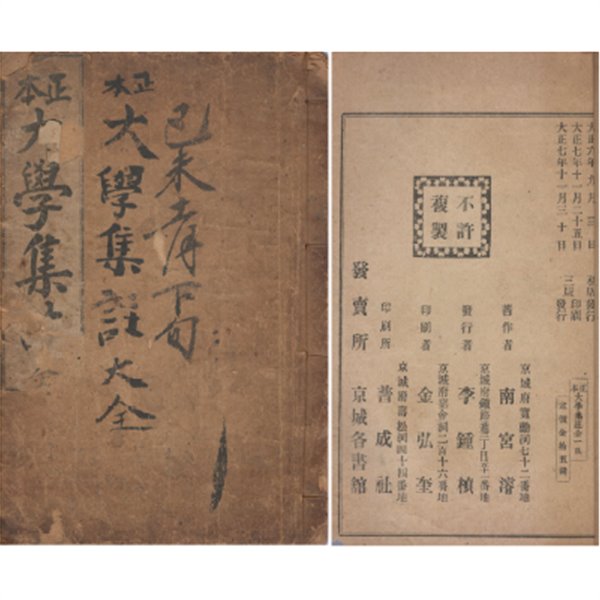 己未
下旬
正本
大學集註大全
正本
大學集
全
大正六年九月三日 發行
大正七年十一月二十五日
大正七年十一月三十日
三版 印刷
發行
不許
複製
正本大學集註全一冊
京城府寬勳洞七十二番地
著作者 南宮濬
京城府鐘路通二丁目
發行者 李鍾楨
京城府嘉會洞二百十六番地
印刷者 金弘奎
京城府壽松洞四十四番地
印刷所 普成社
發賣所 京城各書館